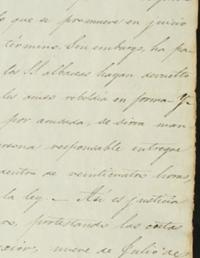 que se promueve en juicio
término. Sin embargo, ha pa
los SS. albaceas hayan devuelto
les acuso rebeldía en forma y
por acusada, se sirva man
persona responsable entregue
dentro de veinticuatro horas,
la ley. — Así es justicia
protestando las costas
nueve de Julio de